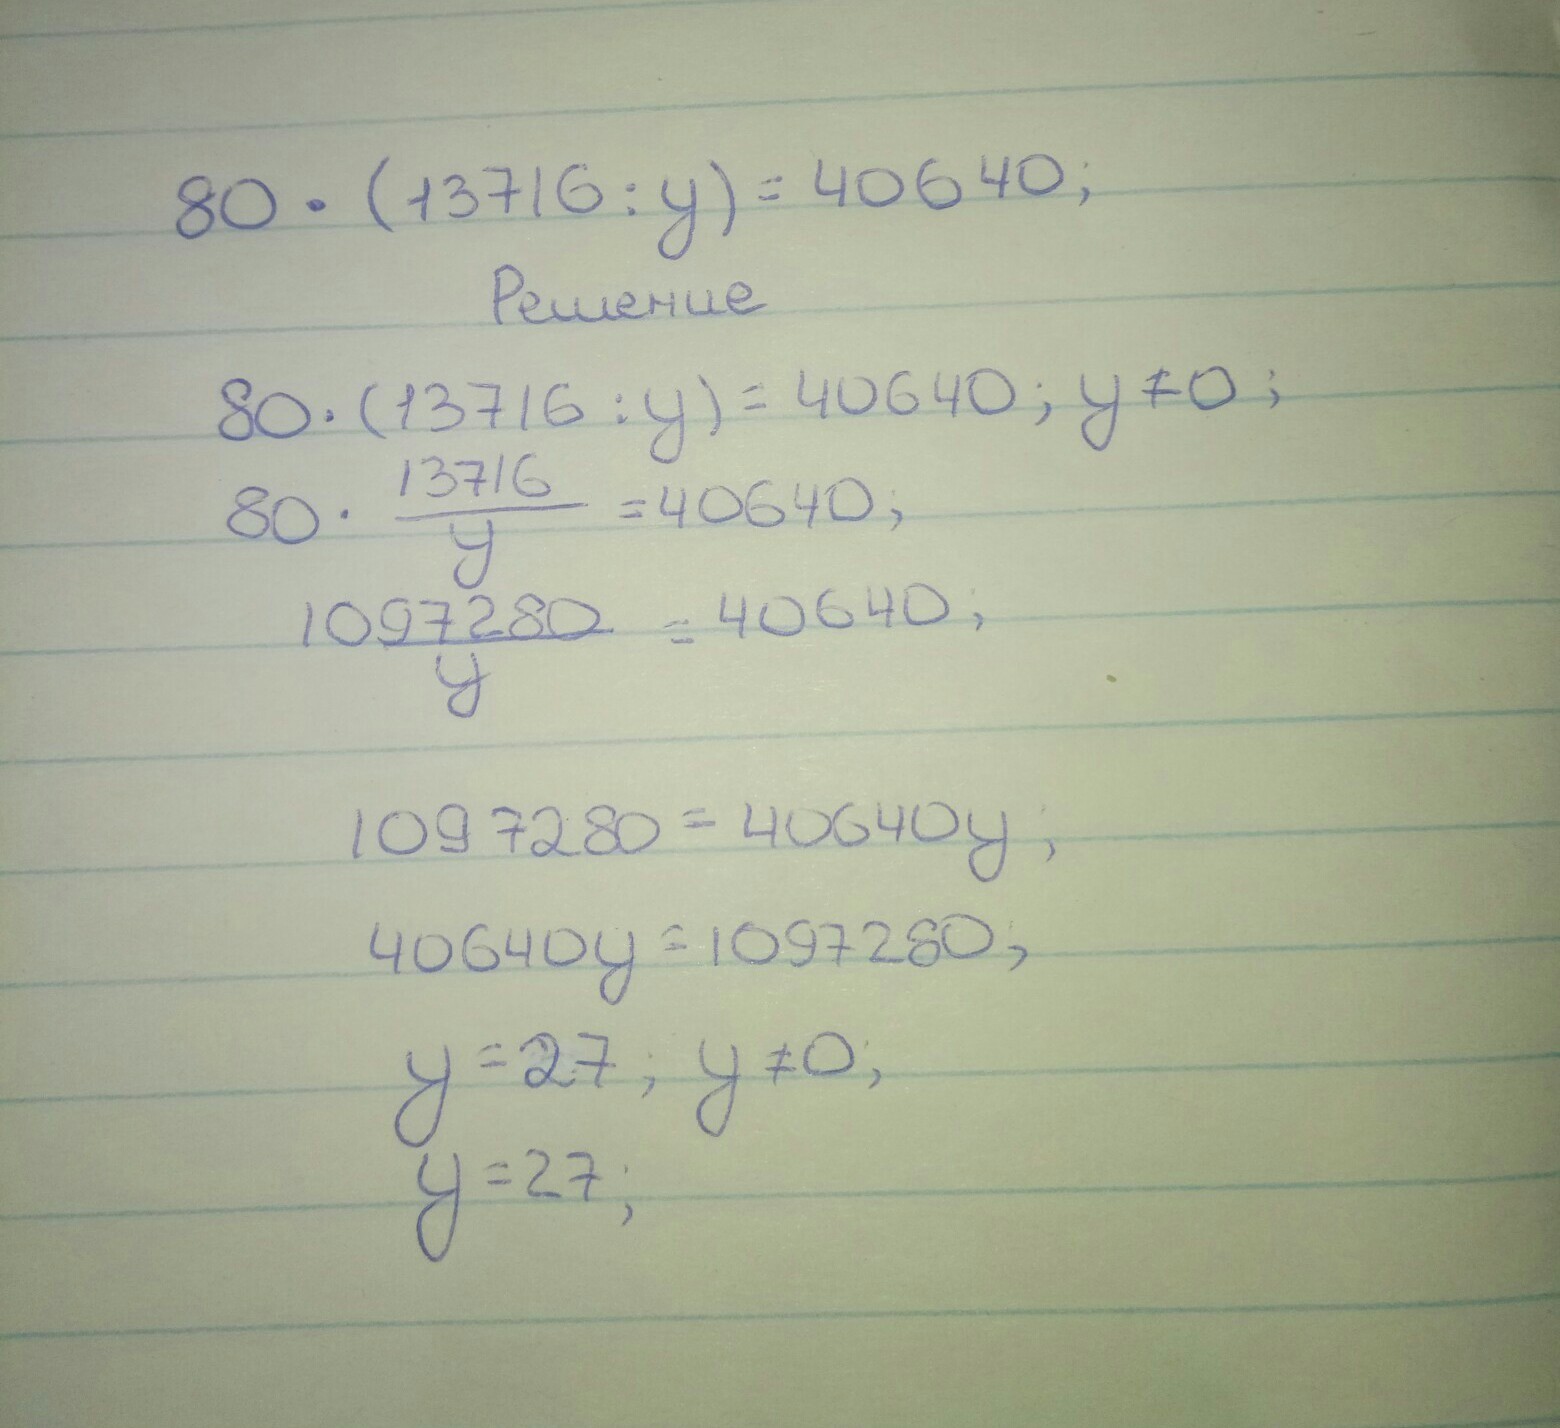 80 · (13716 : y) = 40640;
Решение
80 · (13716 : y) = 40640; y ≠ 0;
80 · 13716/y = 40640;
1097280/y = 40640;
1097280 = 40640y;
40640y = 1097280;
y = 27; y ≠ 0;
y = 27;